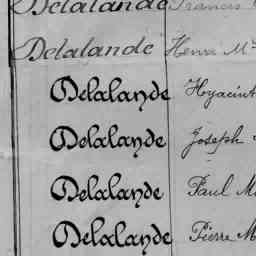 Delalande Francis
Delalande Henri M
Delalande Hyacint
Delalande Joseph
Delalande Paul M
Delalande Pierre M